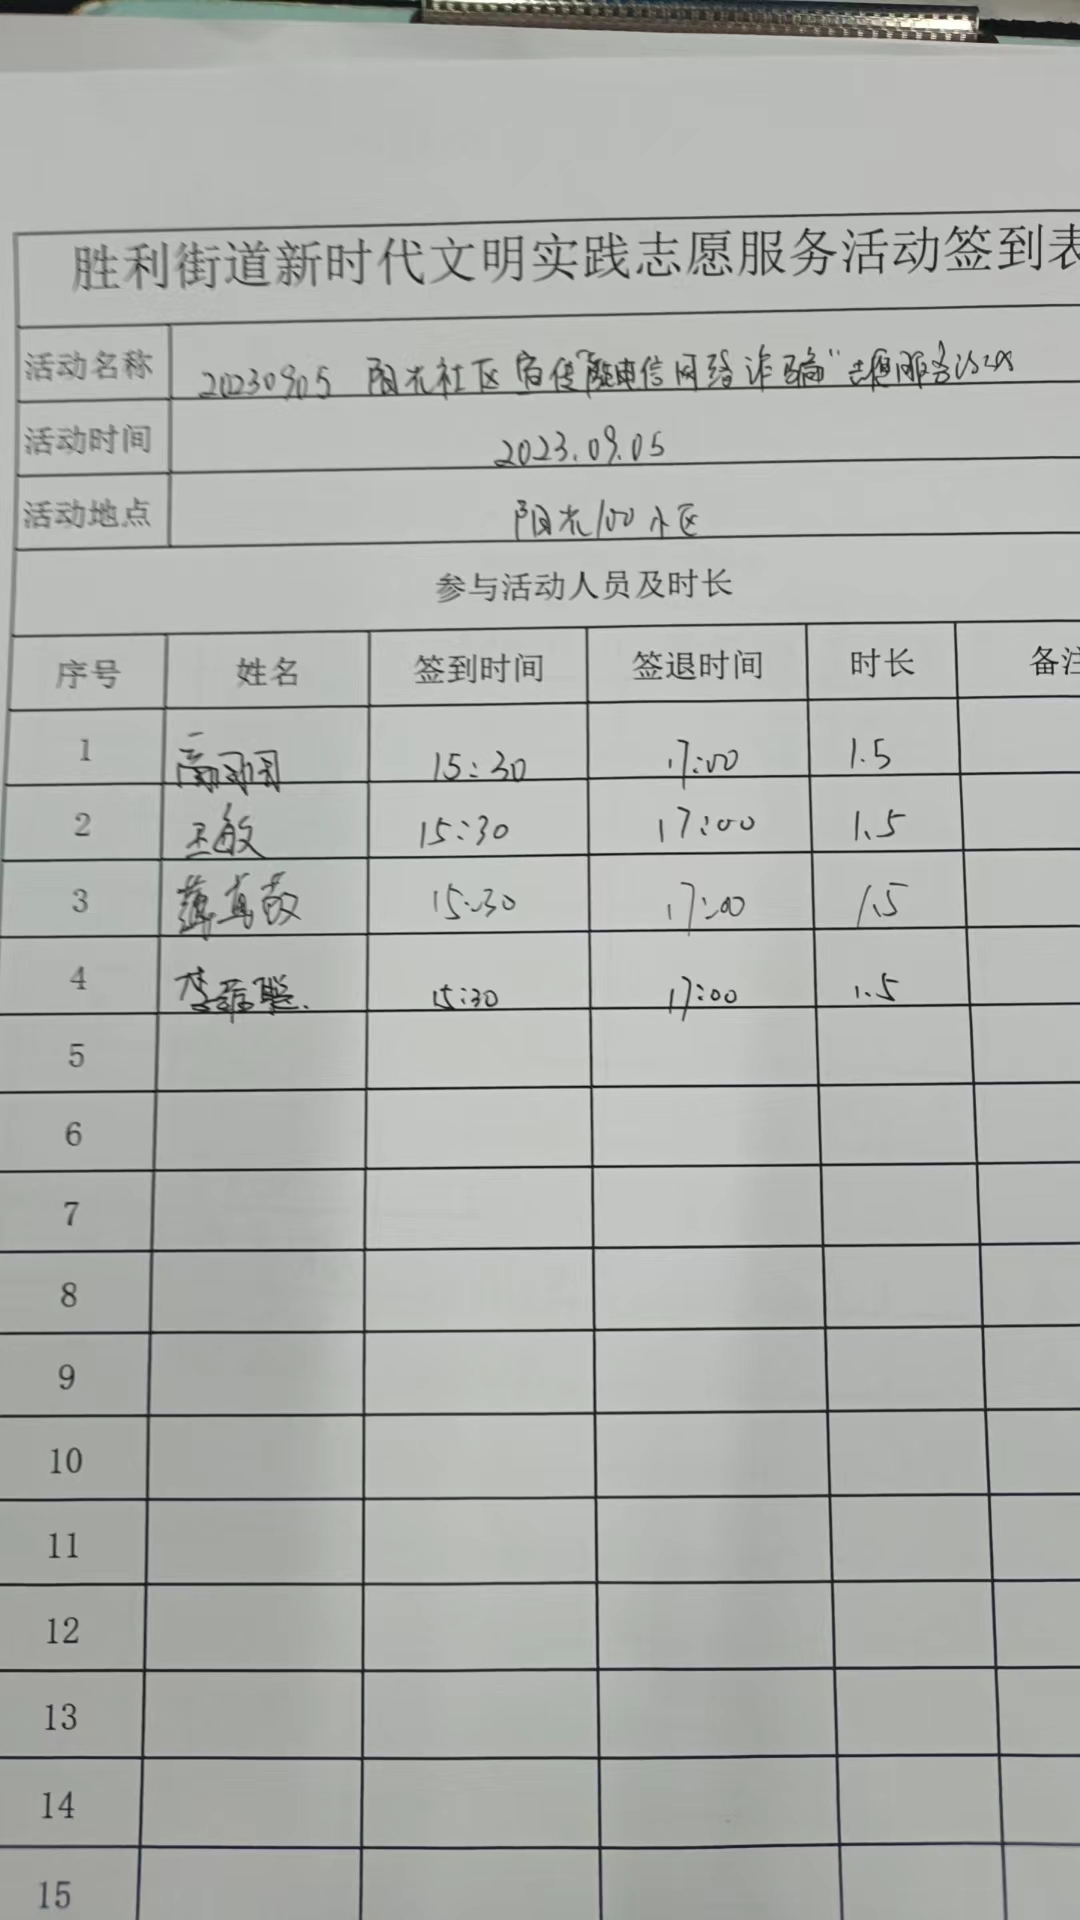 胜利街道新时代文明实践志愿服务活动签到表
活动名称 20230905 阳光社区宣传"防范电信网络诈骗"志愿服务活动
活动时间 2023.09.05
活动地点 阳光100小区
参与活动人员及时长
序号 姓名 签到时间 签退时间 时长 备注
1 15:30 17:00 1.5
2 王敏 15:30 17:00 1.5
3 15:30 17:00 1.5
4 李 15:30 17:00 1.5
5
6
7
8
9
10
11
12
13
14
15